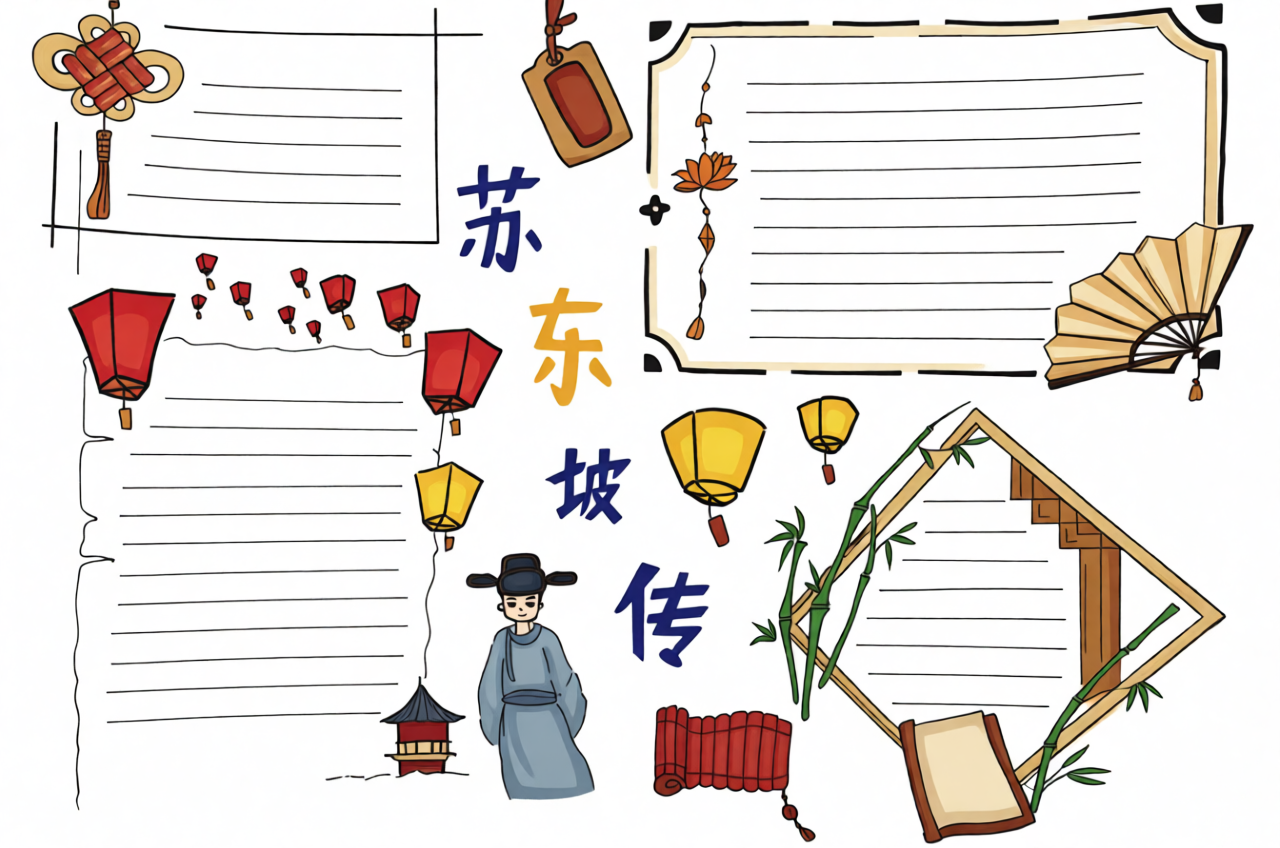 苏
东
坡
传